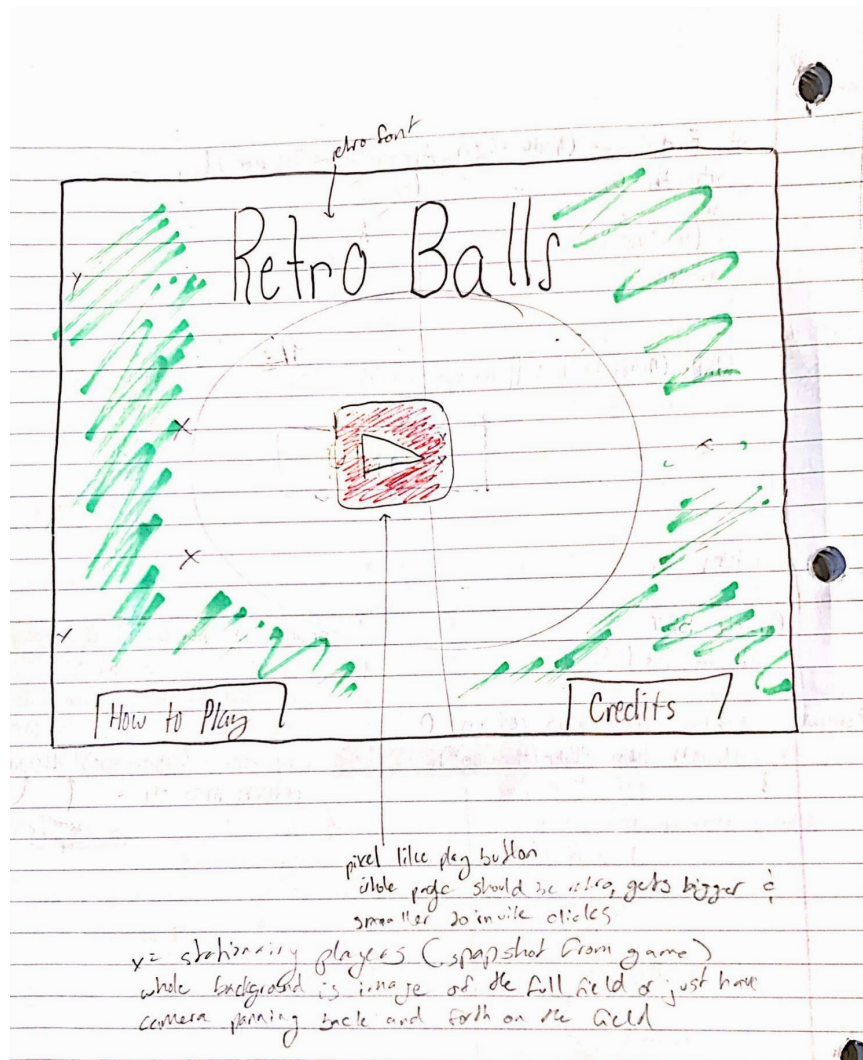 retro font
Retro Balls
How to Play
Credits
pixel like play button
whole page should be retro, gets bigger &
smaller to invite clicks
x = stationairy players (snapshot from game)
whole background is image of the full field or just have
camera panning back and forth on the field